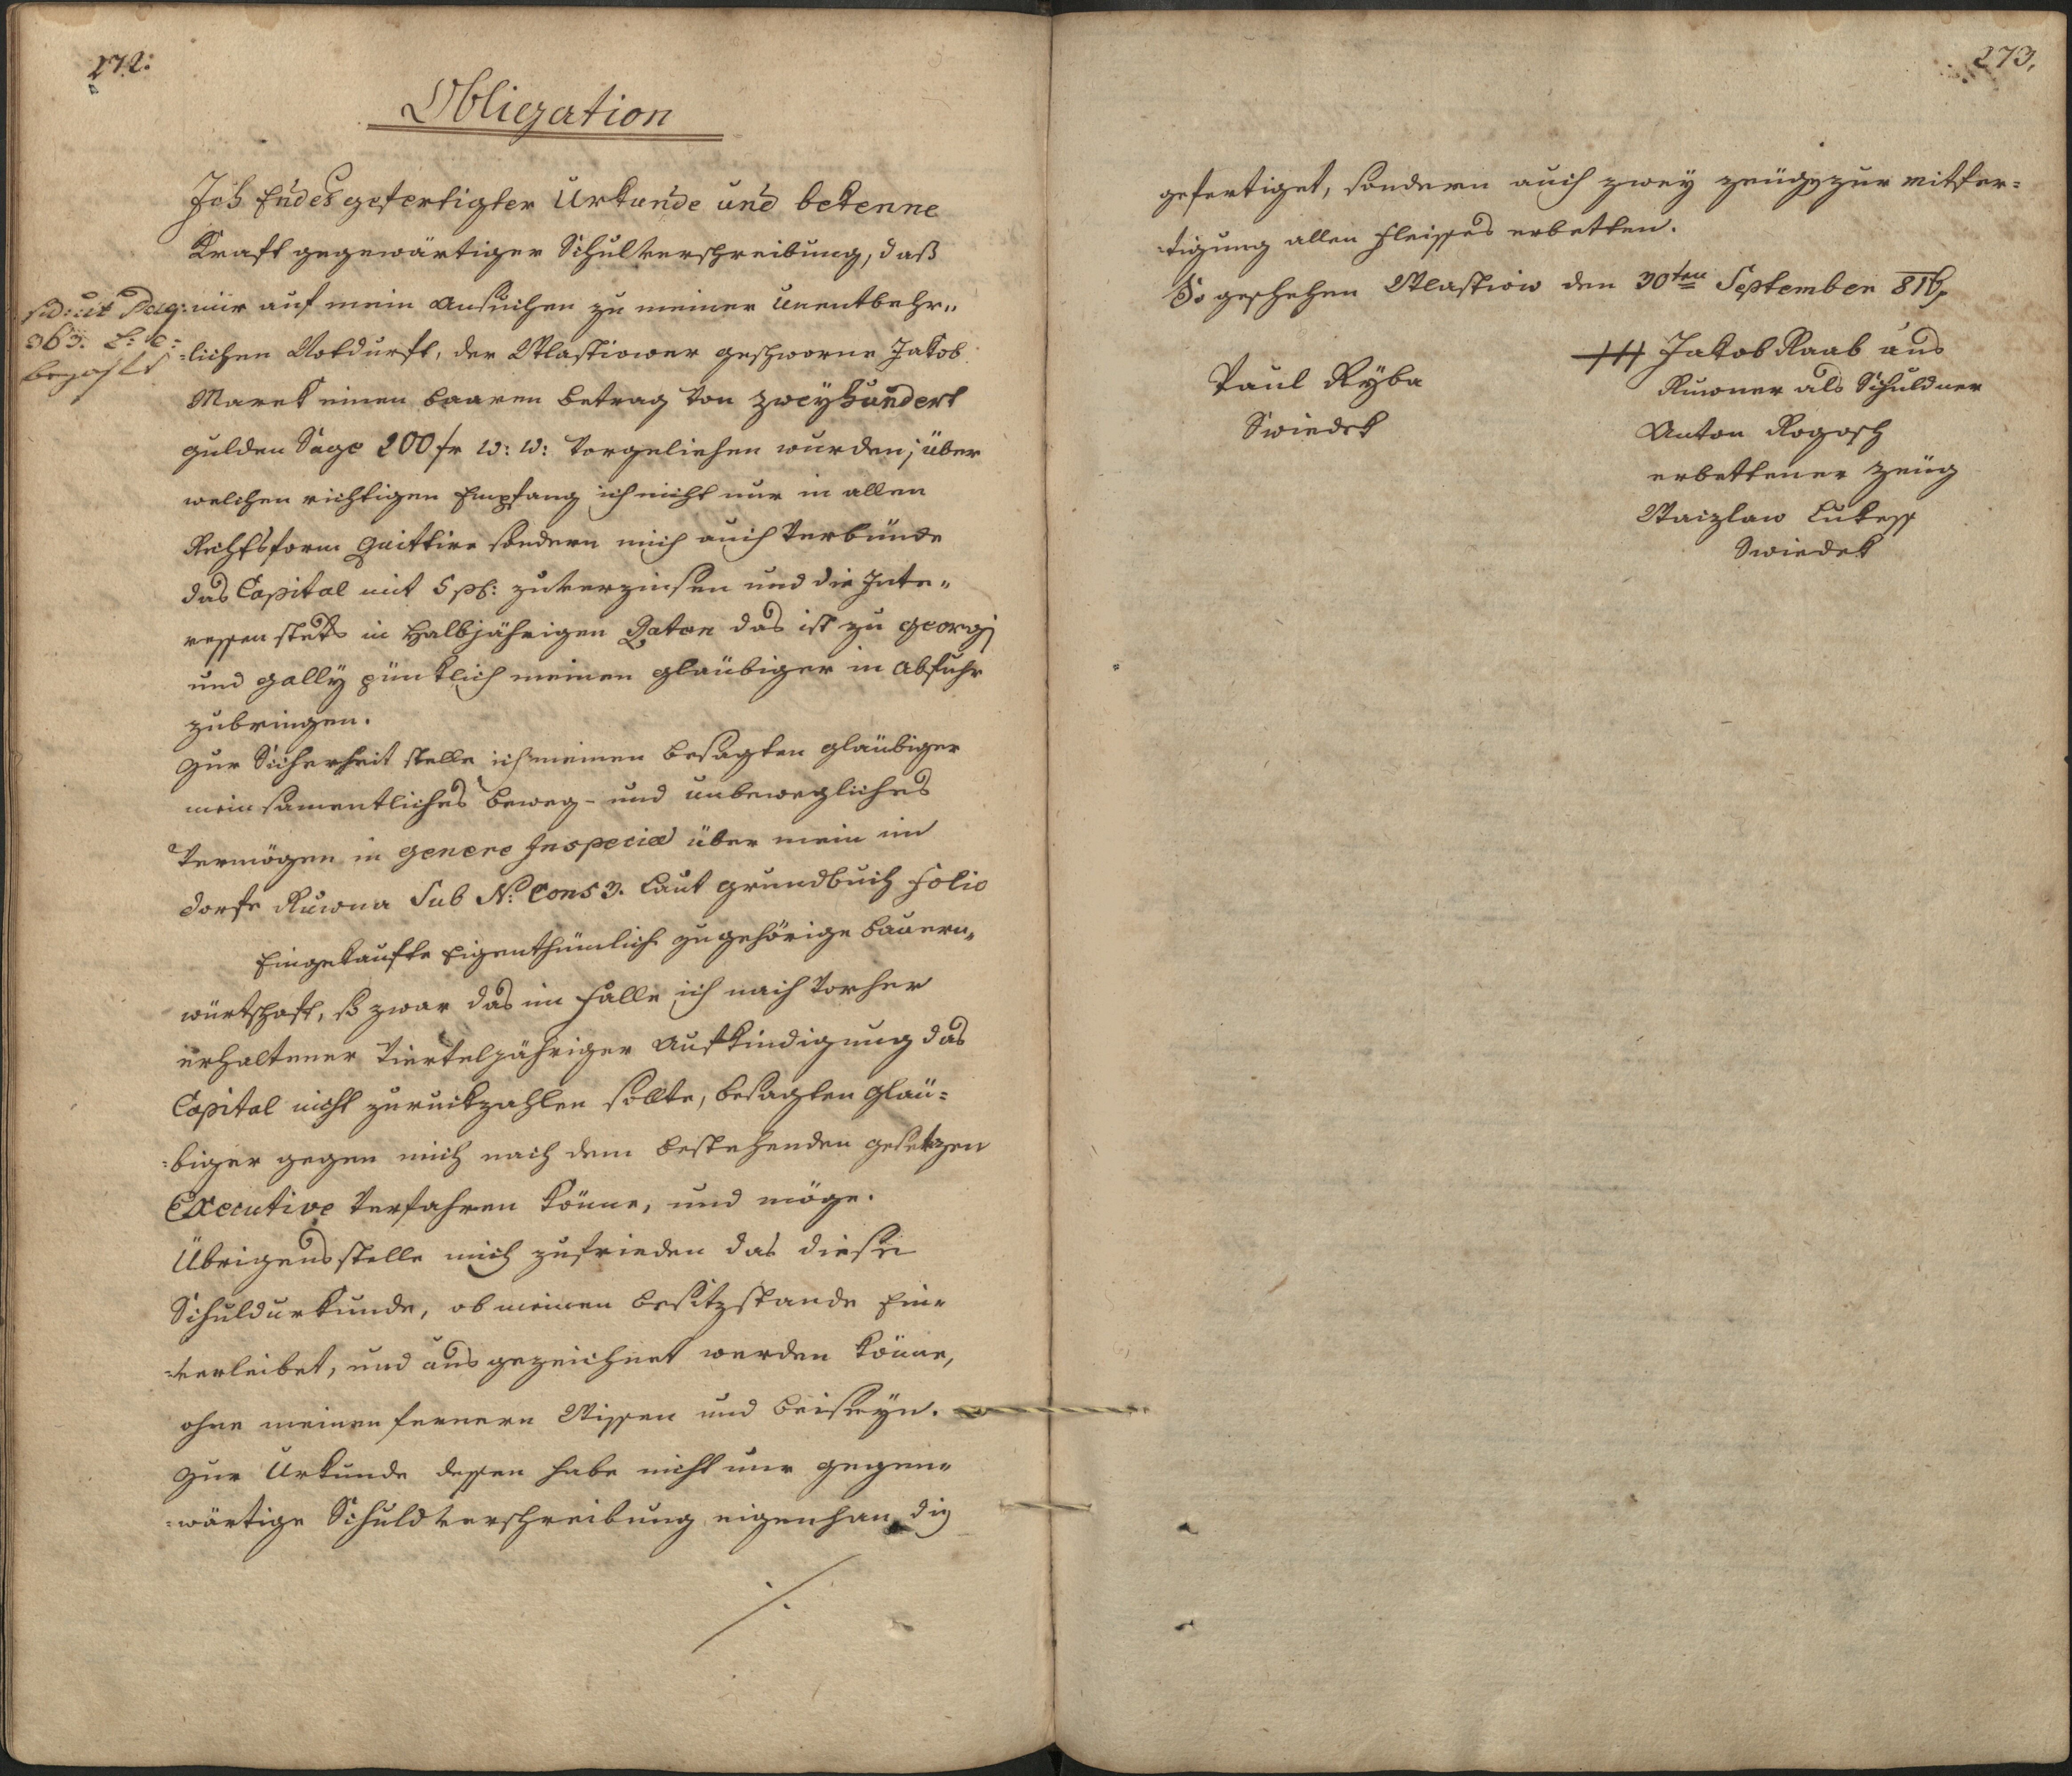 272.
Obligation
Ich Endesgefertigter Urkunde und bekenne
Kraft gegenwärtiger Schulverschreibung, daß
mir auf mein Ansuchen zu meiner unentbehr„
lichen Notdurft, der Wlastiower geschworne Jakob
Marek einen baaren betrag von zweyhundert
gulden Sage 200 fr W: W: vorgeliehen wurden; über
welchen richtigen Empfang ich nicht nur in allen
Rechtsform Quittire sondern mich auch verbünde
das Capital mit 5 pC: zuverzinsen und die Inte„
ressen stets in Halbjährigen Raten das ist zu georgj
und gally pünktlich meinen gläubiger in Abfuhr
zubringen.
Zur Sicherheit stelle ich meinen besagten gläubiger
mein samentliches beweg- und unbewegliches
Vermögen in genere Inspeciæ über mein im
dorfe Ruwna Sub N: Cons 3. laut grundbuch folio
Eingekaufte Eigenthümlich zugehörige bauern„
würtschaft, so zwar das im Falle ich nach vorher
erhaltener Viertelzähriger Aufkindigung das
Capital nicht zuruckzahlen sollte, besagten gläu=
=biger gegen mich nach dem bestehenden gesetzen
Executive Verfahren könne, und möge.
Übrigens stelle mich zufrieden das diese
Schuldurkunde, ob meinen besitzstande Ein=
=verleibet, und ausgezeichnet werden könne,
ohne meinen fernern Wissen und beiseyn.
Zur Urkunde dessen habe nicht nur gegen=
=wärtige Schuldverschreibung eigenhandig
./.
pag:
363.
bezahlt
273.
gefertiget, sondern auch zwey zeüge zur mitfer=
=tigung allen Fleisses erbetten.
So geschehen Wlastiow den 30ten September 816.
Paul Ryba
Swiedek
+++ Jakob Raab aus
Ruwner als Schuldner
Anton Rogosch
erbettener zeüg
Waizlaw Lukesch
Swiedek